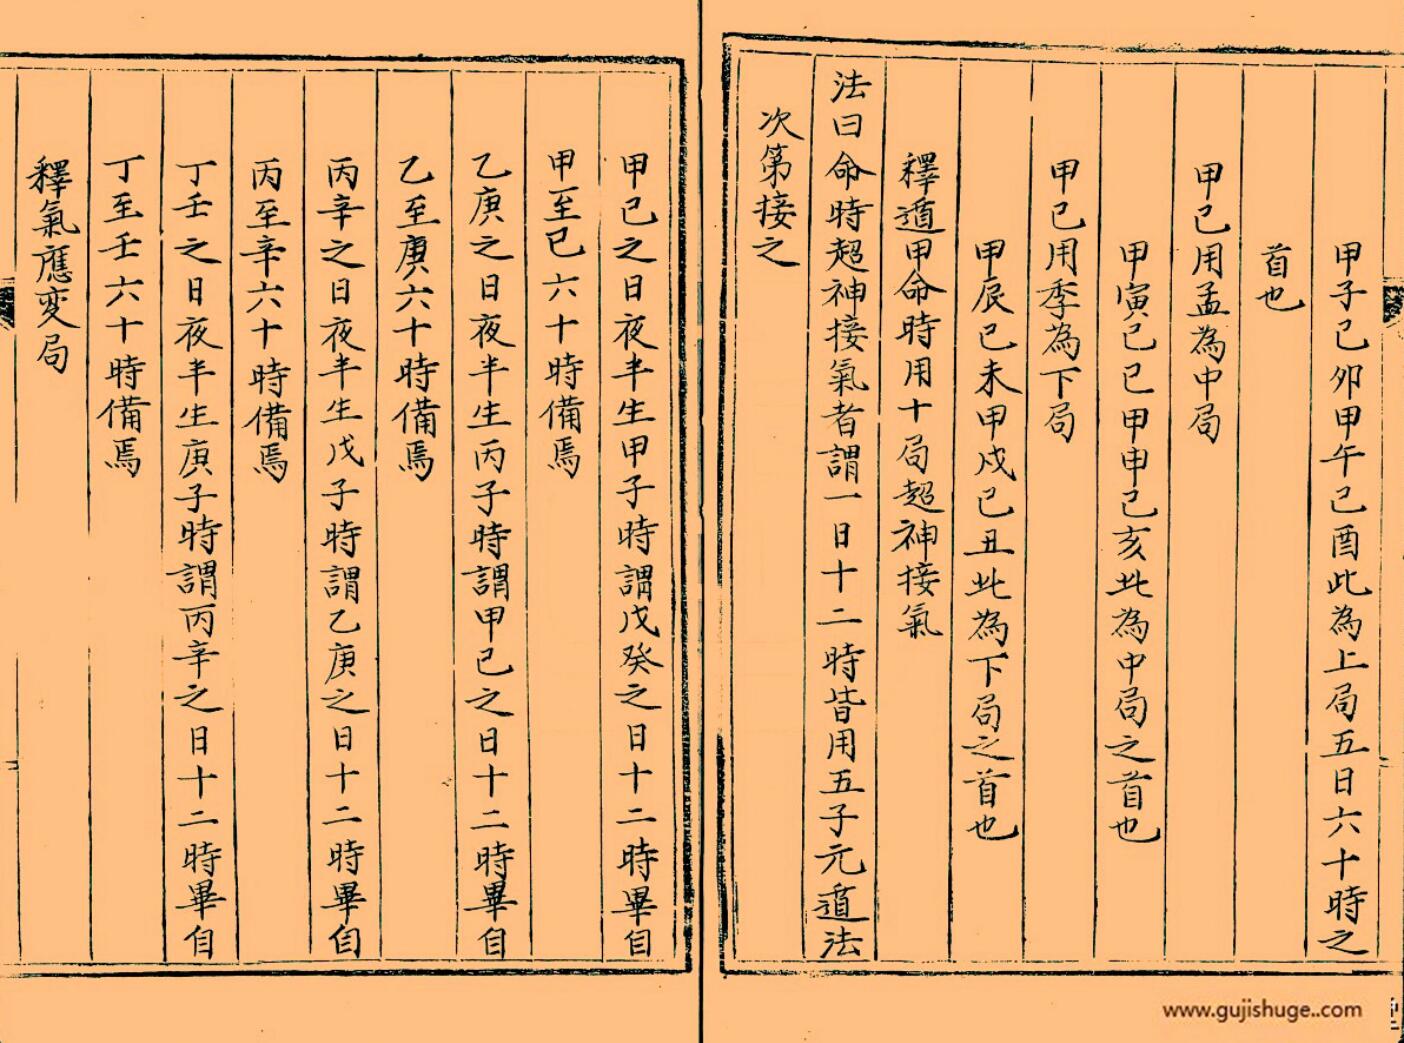 甲子己卯甲午己酉此為上局五日六十時之
首也
甲己用孟為中局
甲寅己巳甲申己亥此為中局之首也
甲己用季為下局
甲辰己未甲戌己丑此為下局之首也
釋遁甲命時用十局超神接氣
法曰命時超神接氣者謂一日十二時皆用五子元遁法
次第接之
甲己之日夜半生甲子時謂戊癸之日十二時畢自
甲至己六十時備焉
乙庚之日夜半生丙子時謂甲己之日十二時畢自
乙至庚六十時備焉
丙辛之日夜半生戊子時謂乙庚之日十二時畢自
丙至辛六十時備焉
丁壬之日夜半生庚子時謂丙辛之日十二時畢自
丁至壬六十時備焉
釋氣應変局
www.gujishuge..com